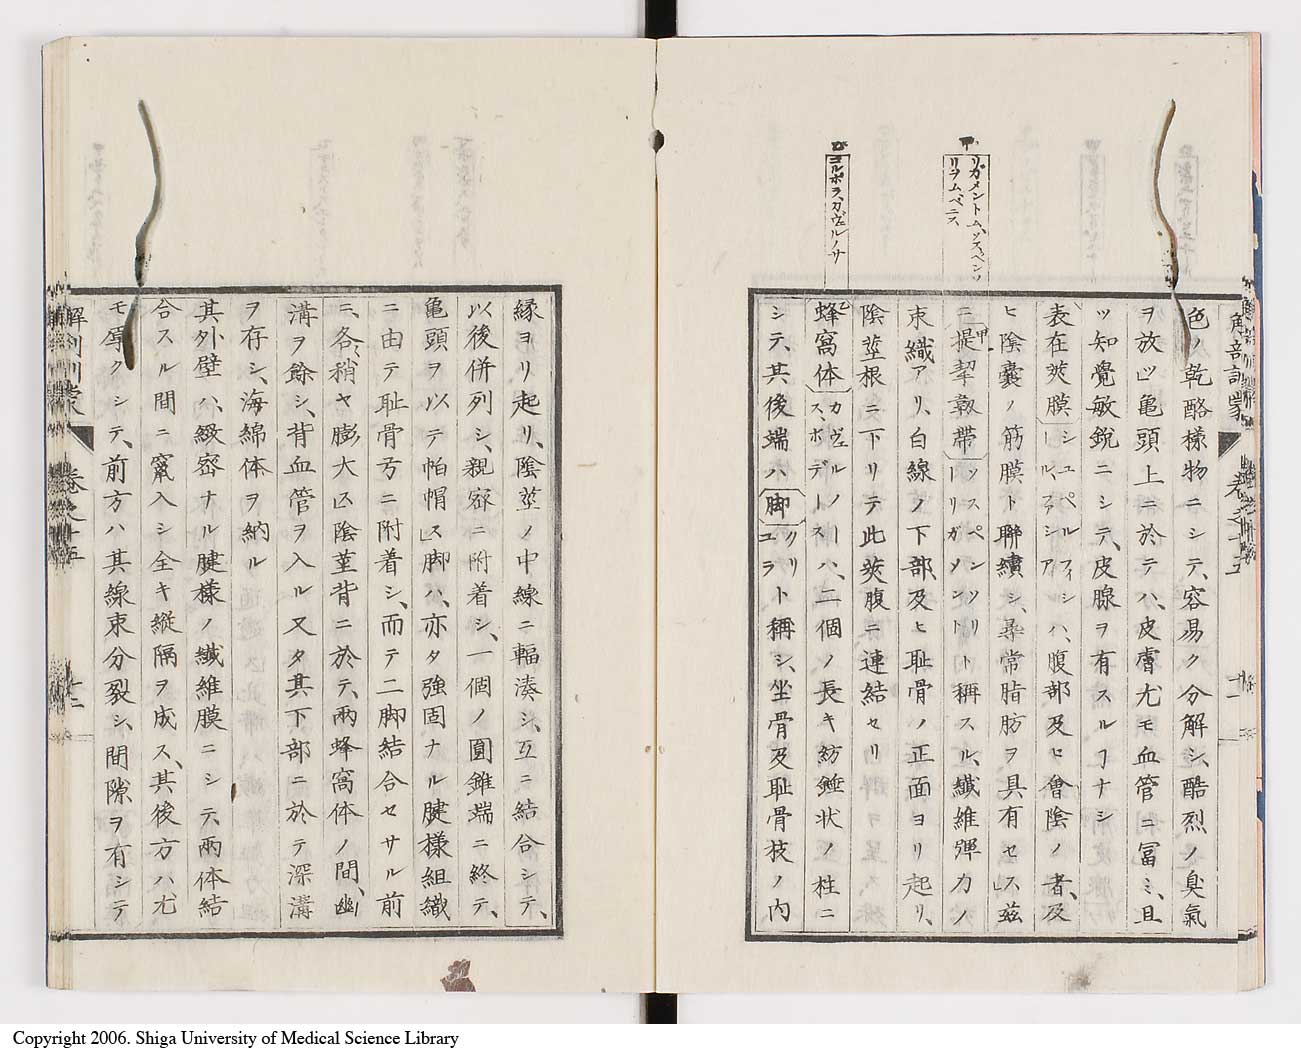 解剖訓蒙
卷之十五
十一
甲
リガメントム、ソスペンソ
リヲム、ペニス
乙
コルポラ、カヴェルノサ
色ノ乾酪樣物ニシテ、容易ク分解シ、酷烈ノ臭氣
ヲ放ツ」亀頭上ニ於テハ、皮膚尤モ血管ニ冨ミ、且
ツ知覺敏銳ニシテ、皮腺ヲ有スルヿナシ
表在莢膜シュペルフィシールファシアハ、腹部及ヒ會陰ノ者、及
ヒ陰嚢ノ筋膜ト聯續シ、尋常脂肪ヲ具有セス」茲
ニ提挈靱帶ソスペンソリーリガメントト稱スル、纎維彈力ノ
束織アリ、白線ノ下部及ヒ耻骨ノ正面ヨリ起リ、
陰莖根ニ下リテ此莢腹ニ連結セリ
蜂窩体カヴェルノースボデースハ、二個ノ長キ紡錘状ノ柱ニ
シテ、其後端ハ脚コリュラト稱シ、坐骨及耻骨枝ノ内
縁ヨリ起リ、陰莖ノ中線ニ輻湊シ、互ニ結合シテ、
以後併列シ、親密ニ附着シ、一個ノ圓錐端ニ終テ、
亀頭ヲ以テ帕帽ス」脚ハ、亦タ強固ナル腱樣組織
ニ由テ耻骨弓ニ附着シ、而テ二脚結合セサル前
ニ、各稍ヤ膨大ス」陰莖背ニ於テ、兩蜂窩体ノ間、幽
溝ヲ餘シ、背血管ヲ入ル又タ其下部ニ於テ深溝
ヲ存シ、海綿体ヲ納ル
其外壁ハ、緻密ナル腱樣ノ纎維膜ニシテ、兩体結
合スル間ニ竄入シ全キ縱隔ヲ成ス、其後方ハ尤
モ厚クシテ、前方ハ其線束分裂シ、間隙ヲ有シテ
解剖訓蒙
卷之十五
十二
Copyright 2006. Shiga University of Medical Science Library